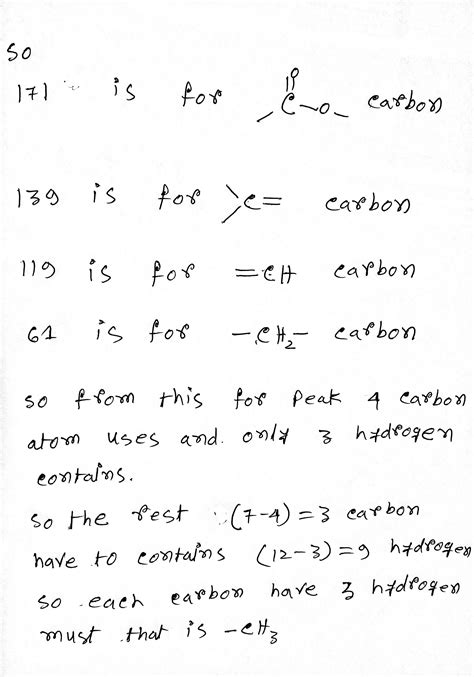 so
171 is for -C(=O)-O- carbon
139 is for >C= carbon
119 is for =CH carbon
61 is for -CH₂- carbon
so from this for peak 4 carbon
atom uses and only 3 hydrogen
contains.
so the rest (7-4)=3 carbon
have to contains (12-3)=9 hydrogen
so each carbon have 3 hydrogen
must that is -CH₃